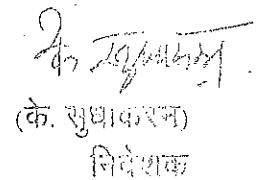 (के. सुधाकरन)
निदेशक